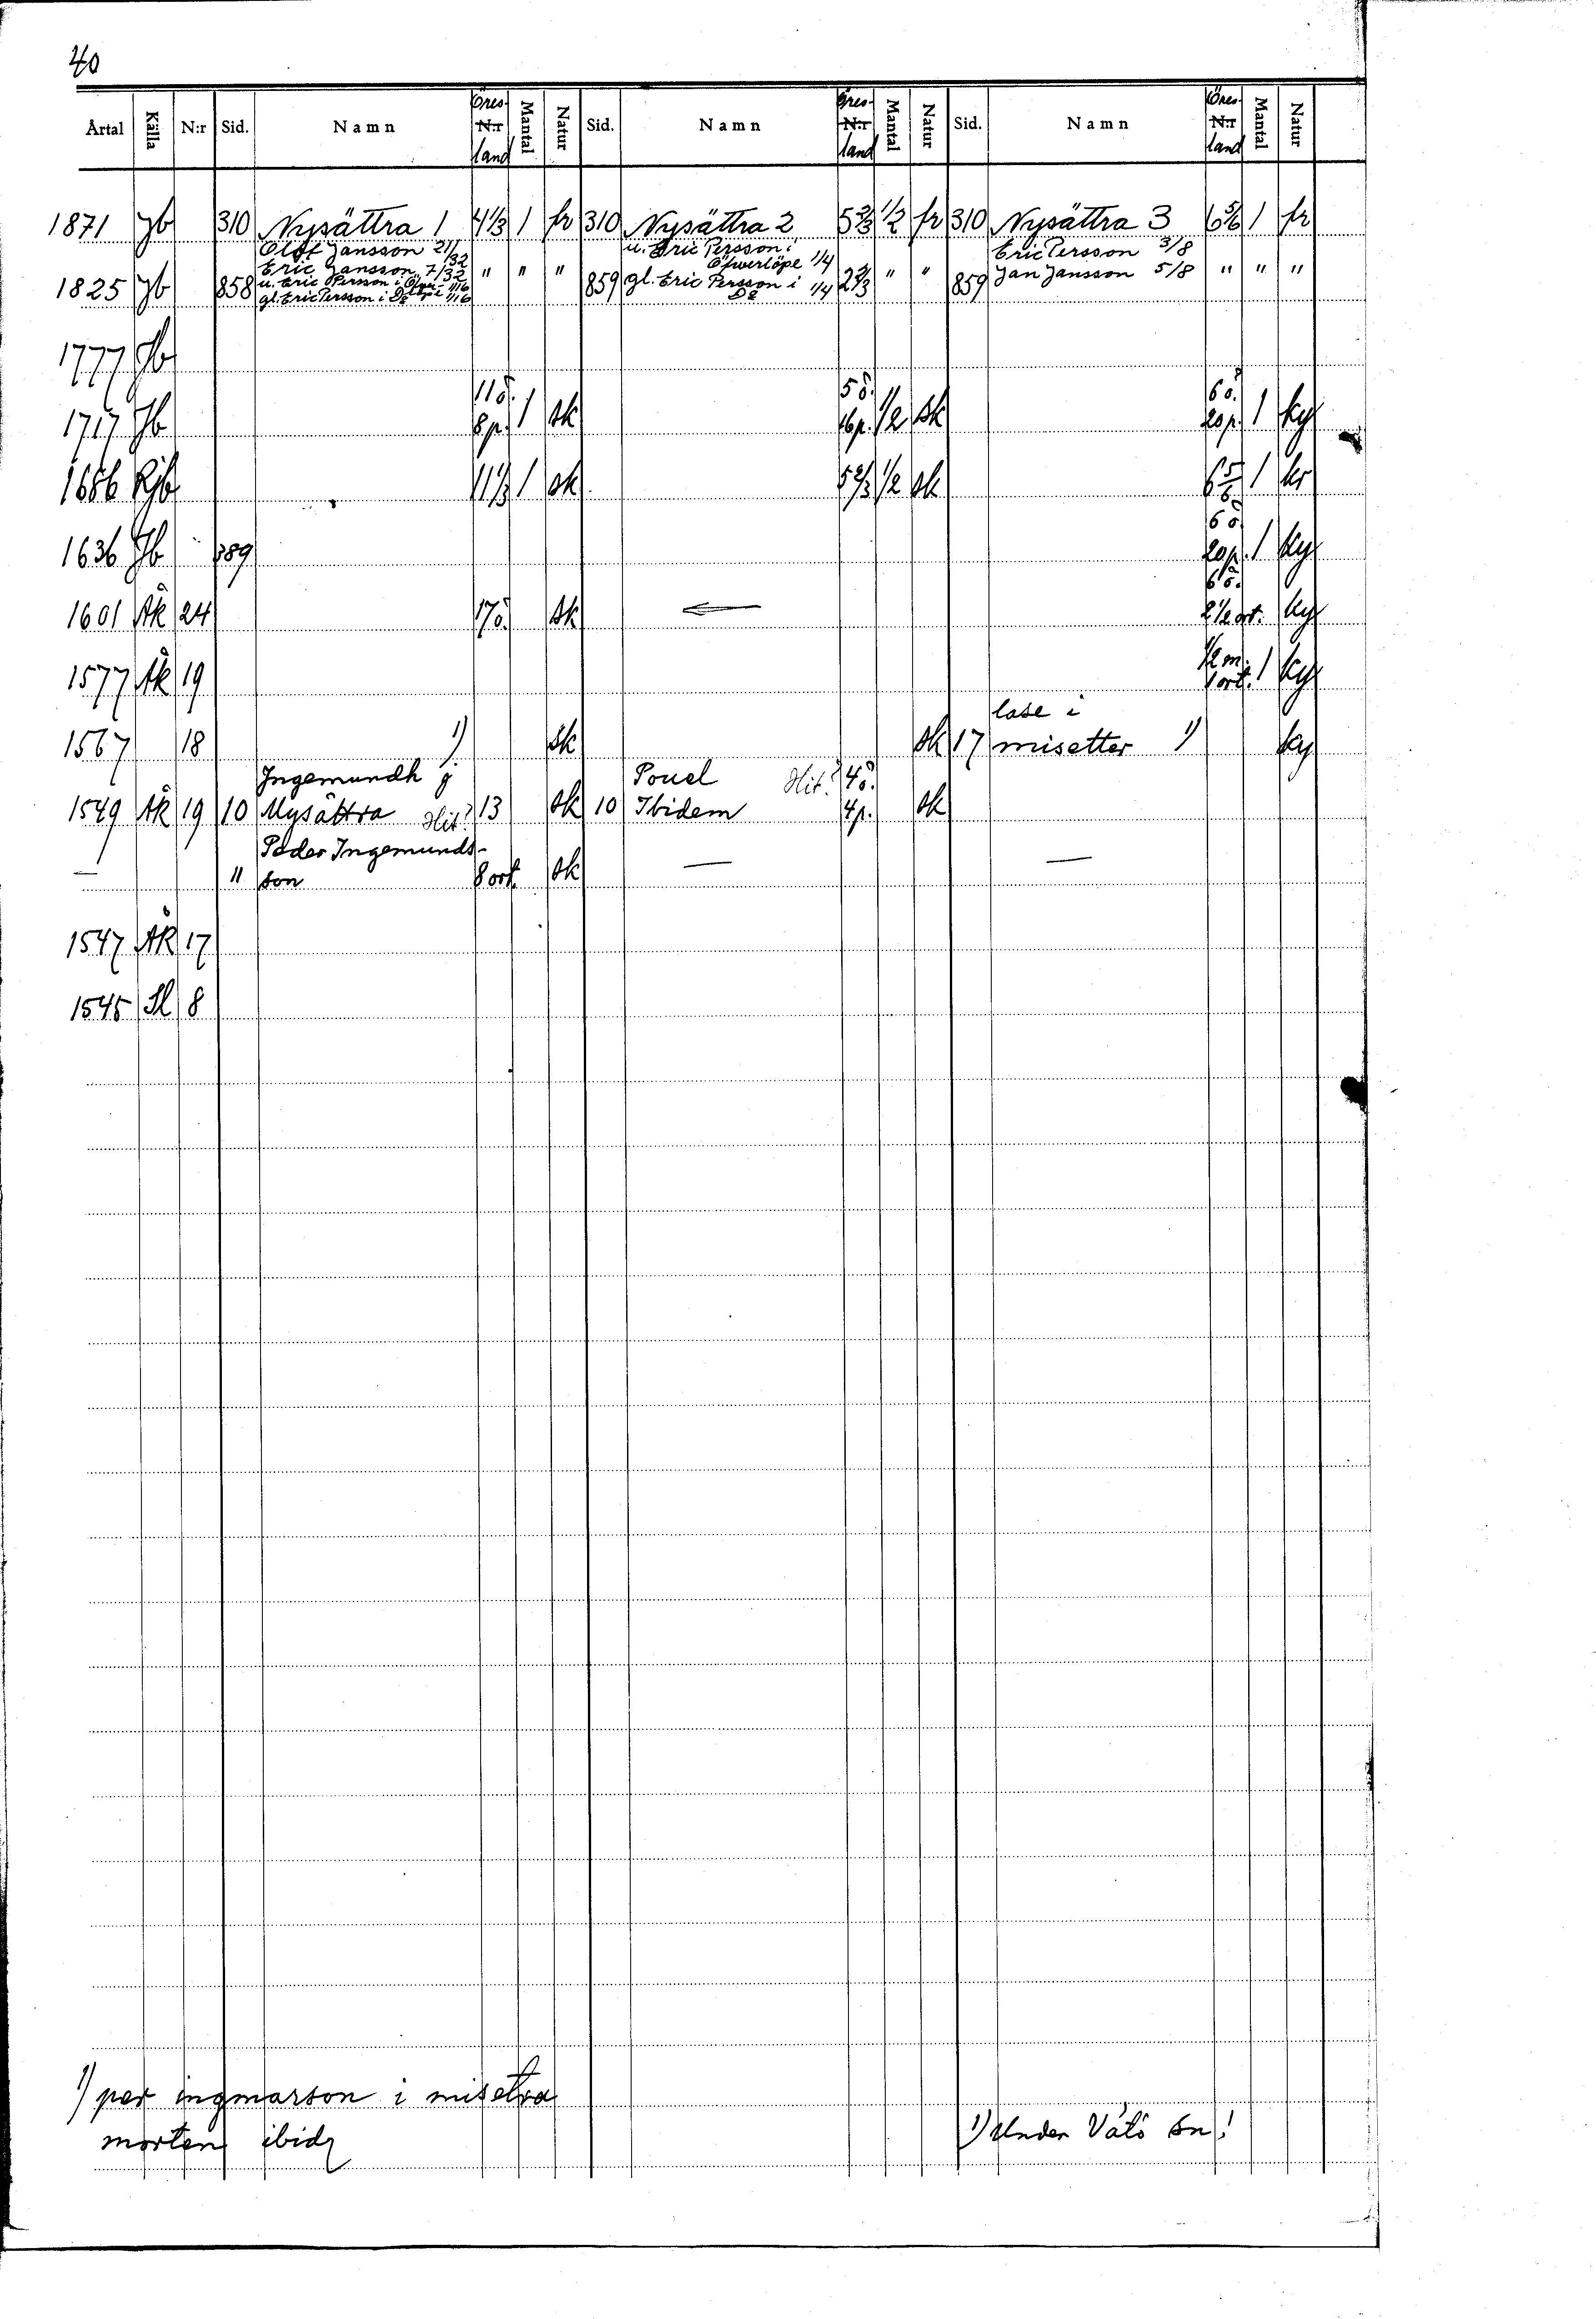 40
Årtal Källa N:r Sid. Namn Öres- N:r land Mantal Natur Sid. Namn Öres- N:r land Mantal Natur Sid. Namn Öres- N:r land Mantal Natur
1871 Jb 310 Nysättra 1 41/3 1 fr 310 Nysättra 2 5 2/3 1/2 fr 310 Nysättra 3 6 5/6 1 fr
Olof Jansson 21/32 u. Eric Persson i Eric Persson 3/8
Eric Jansson 7/32 Öfwerlöpe 1/4
1825 Jb 858 u. Eric Persson i 1/16 " " " 859 gl. Eric Persson i 1/4 2 2/3 " " 859 Jan Jansson 5/8 " " "
gl. Eric Persson i Do 1/16 Do
1777 Jb
11ö. 5ö. 6ö.
1717 Jb 8p. 1 sk 16p. 1/2 sk 20p. 1 ky
1686 Rjb 11 1/3 1 sk 5 2/3 1/2 sk 6 5/6 1 kr
6ö
1636 Jb 389 20p. 1 ky
6ö.
1601 Åk 24 17ö. sk ← 2 1/2 ort. ky
1/2 m.
1577 Åk 19 1 ort. 1 ky
lase i
1567 18 1) sk sk 17 misetter 1) ky
Ingemundh j Pouel Hit? 4ö.
1549 Åk 19 10 Mysättra Hit? 13 sk 10 Ibidem 4p. sk
Peder Ingemunds-
— " son 8 ort. sk — —
1547 Åk 17
1545 Sl 8
1) per ingmarson i misetra
morten ibid
1) Under Vätö sn!